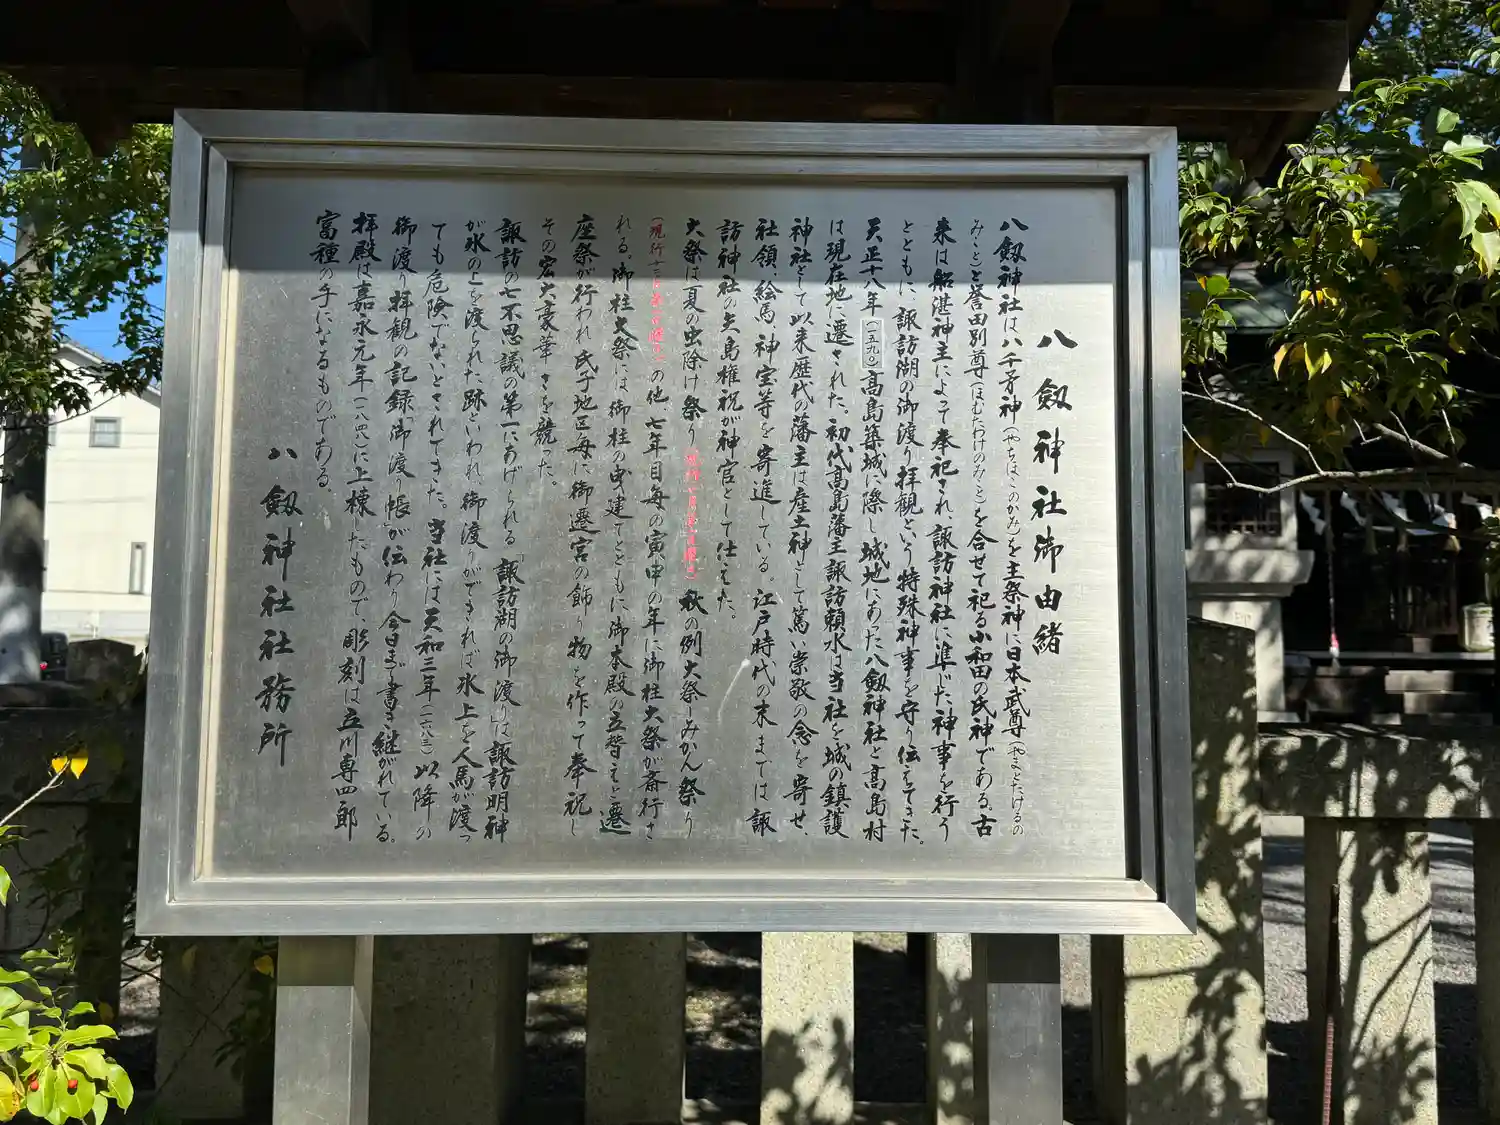 八劔神社御由緒
八劔神社は八千矛神(やちほこのかみ)を主祭神に日本武尊(やまとたけるの
みこと)と誉田別尊(ほむたわけのみこと)を合せて祀る小和田の氏神である。古
来は船湛神主によって奉祀され、諏訪神社に準じた神事を行う
とともに、諏訪湖の御渡り拝観という特殊神事を守り伝えてきた。
天正十八年(一五九〇)高島築城に際し城地にあった八劔神社と高島村
は現在地に遷された。初代高島藩主諏訪頼水は当社を城の鎮護
神社として以来歴代の藩主は産土神として篤い崇敬の念を寄せ、
社領、絵馬、神宝等を寄進している。江戸時代の末までは諏
訪神社の矢島権祝が神官として仕えた。
大祭は夏の虫除け祭り 秋の例大祭=みかん祭り
の他、七年目毎の寅申の年に御柱大祭が斎行さ
れる。御柱大祭には御柱の曳建てとともに御本殿の立替えと遷
座祭が行われ氏子地区毎に御遷宮の飾り物を作って奉祝し
その宏大豪華さを競った。
諏訪の七不思議の第一にあげられる「諏訪湖の御渡り」は諏訪明神
が氷の上を渡られた跡といわれ、御渡りができれば氷上を人馬が渡っ
ても危険でないとされてきた。当社には天和三年(一六八三)以降の
御渡り拝観の記録「御渡り帳」が伝わり今日まで書き継がれている。
拝殿は嘉永元年(一八四八)に上棟したもので、彫刻は立川専四郎
富種の手になるものである。
八劔神社社務所